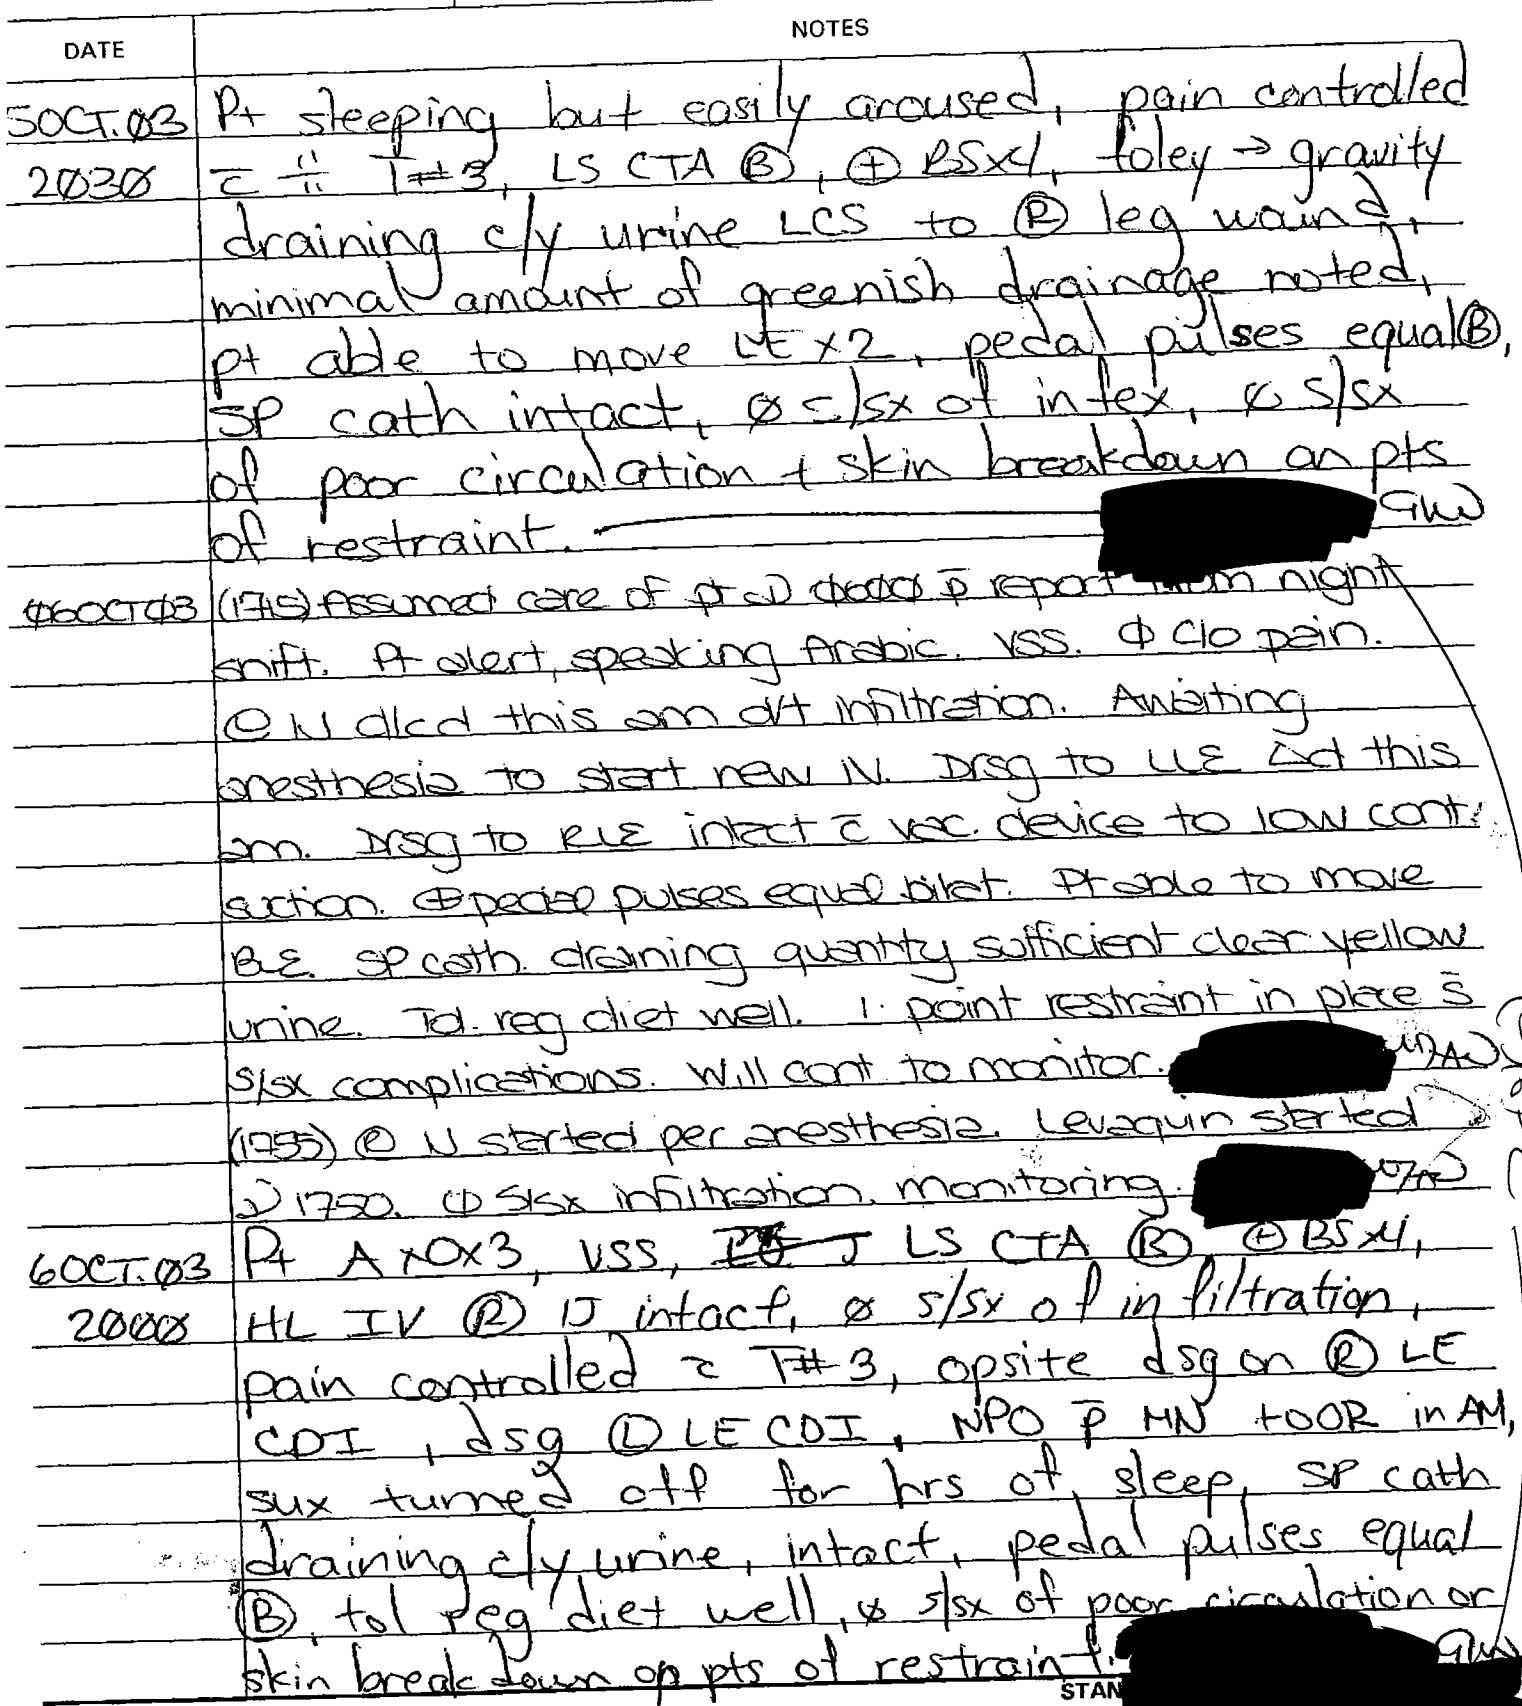 DATE NOTES
5OCT.03 Pt sleeping but easily aroused, pain controlled
2030 c̄ ii T#3, LS CTA Ⓑ, ⊕ BSx4, foley → gravity
draining c/y urine LCS to Ⓡ leg wound,
minimal amount of greenish drainage noted,
pt able to move LE x2, pedal pulses equal Ⓑ,
SP cath intact, Ø s/sx of infex, Ø s/sx
of poor circulation + skin breakdown on pts
of restraint. GW
06OCT03 (1715) Assumed care of pt p̄ report from night
shift. Pt alert, speaking Arabic. VSS. Ø c/o pain.
IV d/cd this am d/t infiltration. Awaiting
anesthesia to start new IV. Drsg to LLE Δd this
am. Drsg to RLE intact c̄ vac. device to low cont.
suction. ⊕ pedal pulses equal bilat. Pt able to move
B.E. SP cath. draining quantity sufficient clear yellow
urine. Tol. reg diet well. 1. point restraint in place s̄
s/sx complications. Will cont to monitor.
(1755) Ⓡ IJ started per anesthesia. Levaquin started
1750. Ø s/sx infiltration. monitoring.
6OCT.03 Pt AxOx3, VSS, LS CTA Ⓑ, ⊕ BSx4,
2000 HL IV Ⓡ IJ intact, Ø s/sx of infiltration,
pain controlled c̄ T#3, opsite dsg on Ⓡ LE
CDI, dsg Ⓛ LE CDI, NPO p̄ MN to OR in AM,
sux turned off for hrs of sleep, SP cath
draining c/y urine, intact, pedal pulses equal
Ⓑ, tol reg diet well, Ø s/sx of poor circulation or
skin breakdown on pts of restraint. GW
STAN